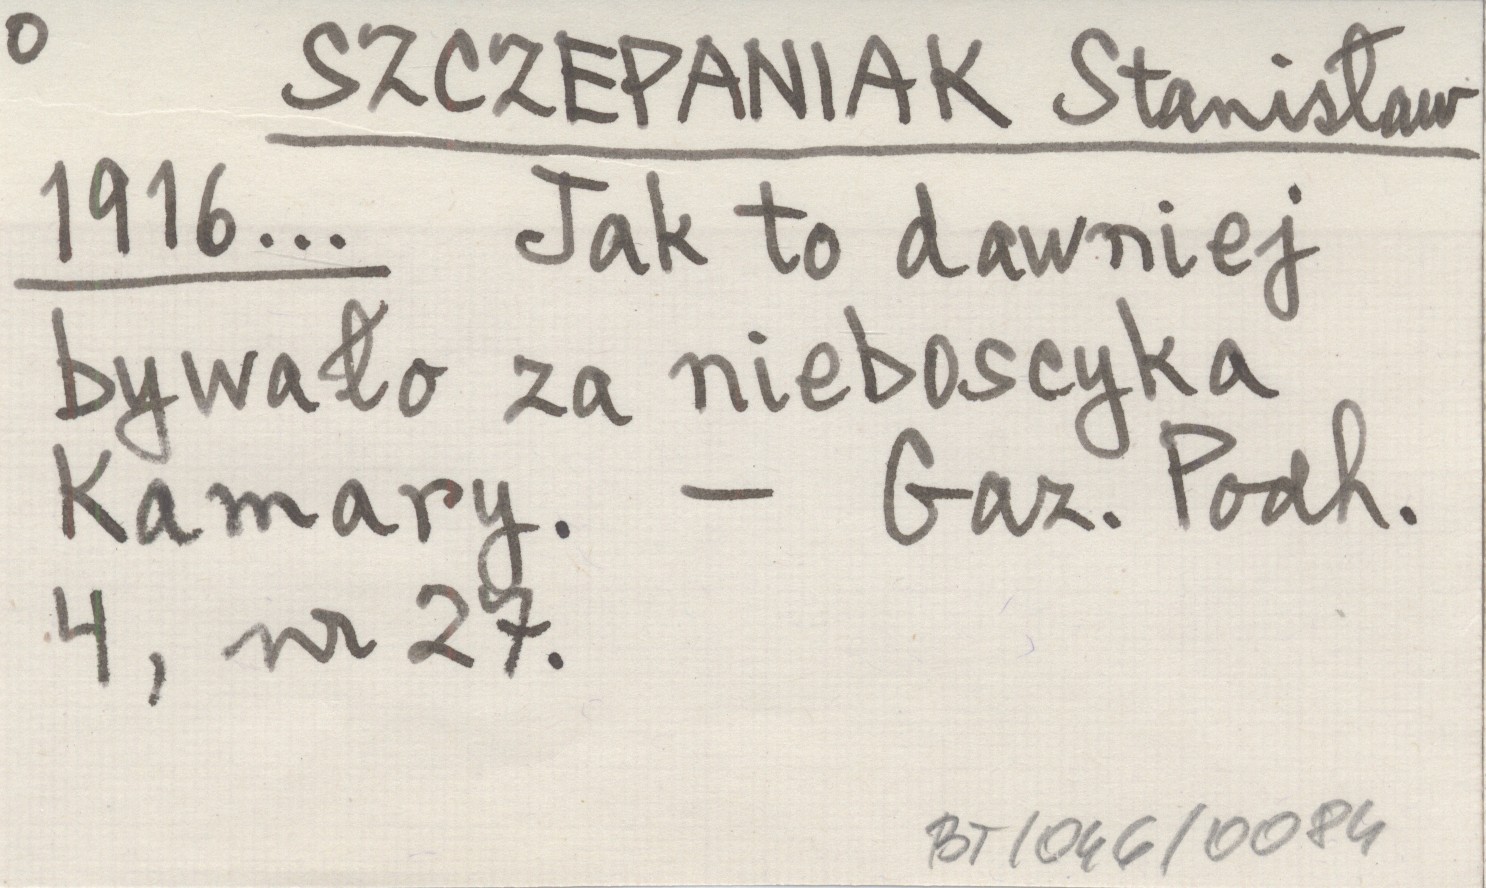 O SZCZEPANIAK Stanisław
1916... Jak to dawniej
bywało za nieboscyka
Kamary. — Gaz. Podh.
4, nr 27.
BT/046/0084